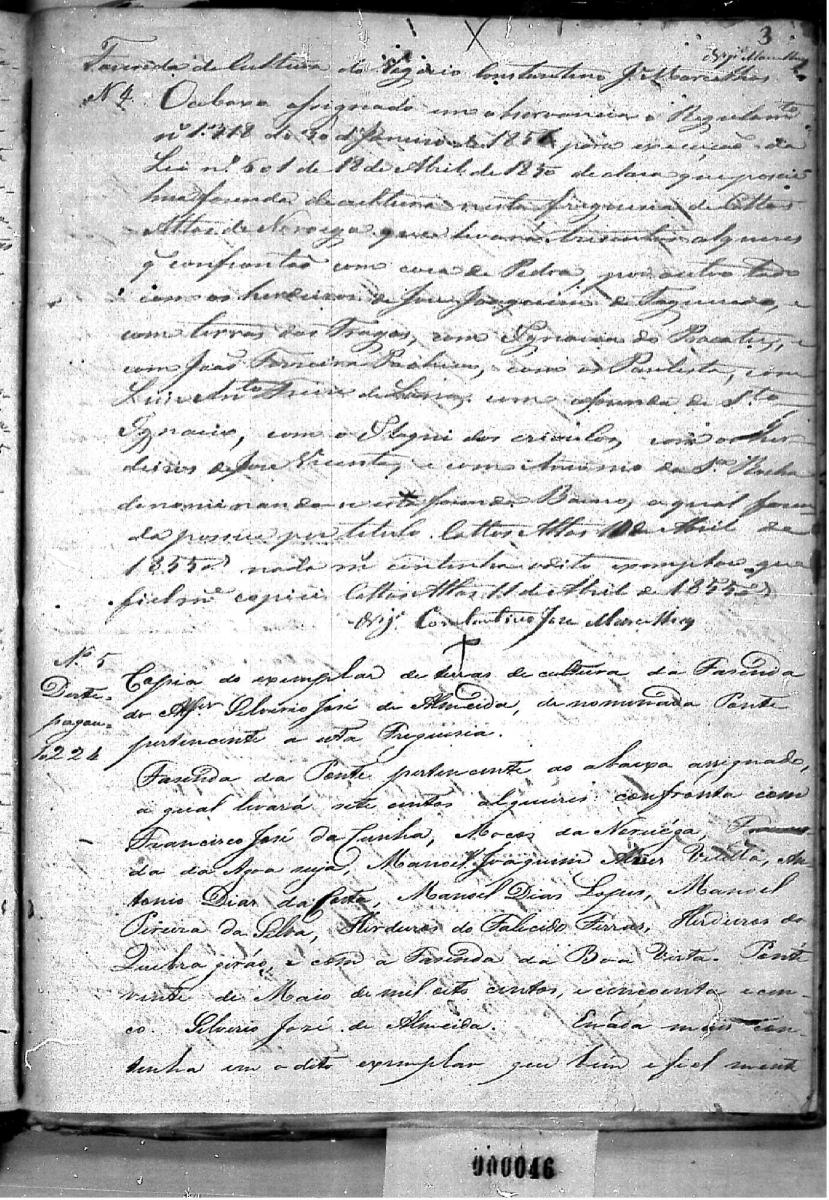 3
Fazenda de Cultura do Vigario Constantino J. Marcellos
Nº 4 O abaxo assignado em observancia o Regulamto
nº 1:318 de 30 de Janeiro de 1854 para execução da
Lei nº 601 de 18 de Abril de 1850 declara que possue
hua fazenda de cultura nesta freguesia de Cattas
Altas de Noroega que levará tresentos alqueires
q confronta com casa de Pedra, por outro lado
com os herdeiros de Jose Joaquim de Fagundes, e
com terras dos Fragas, com Ignacia do, e
com João Ferreira Pacheco, com os Paulista, com
Luis Anto de Lima com a fazenda de Sto
Ignacio, com o dos crioulos, com os her-
deiros de Jose Vicente, e com Antonio da Sa Rocha
denominando esta fazenda Barro, a qual fazen
da possue por titulo. Cattas Altas 11 de Abril de
1855 nada ms continha o dito exemplar que
fielme copiei Cattas Altas 11 de Abril de 1855
Vigr. Constantino Jose Marcellos
Nº 5 Copia do exemplar de terras de cultura da Fazenda
Deste do Alfer Silverio José de Almeida, denominada Ponte
pagou pertencente a esta Freguesia.
224
Fazenda da Ponte pertencente ao abaixo assignado,
a qual levará sete centos alqueires confronta com
Francisco José da Cunha, Mocos da Noruéga, Fazen
da da Agoa suja, Manoel Joaquim Alves Villella, An-
tonio Dias da Costa, Manoel Dias Lopes, Manoel
Pireira da Silva, Herdeiros do Falicido Ferras, Herdeiros do
Quebra, e com a Fazenda da Boa Vista. Ponte
vinte de Maio de mil oito centos, e cincoenta e cin-
co. Silverio José de Almeida. E nada mais con-
tinha em o dito exemplar que bem e fiel mente
000046